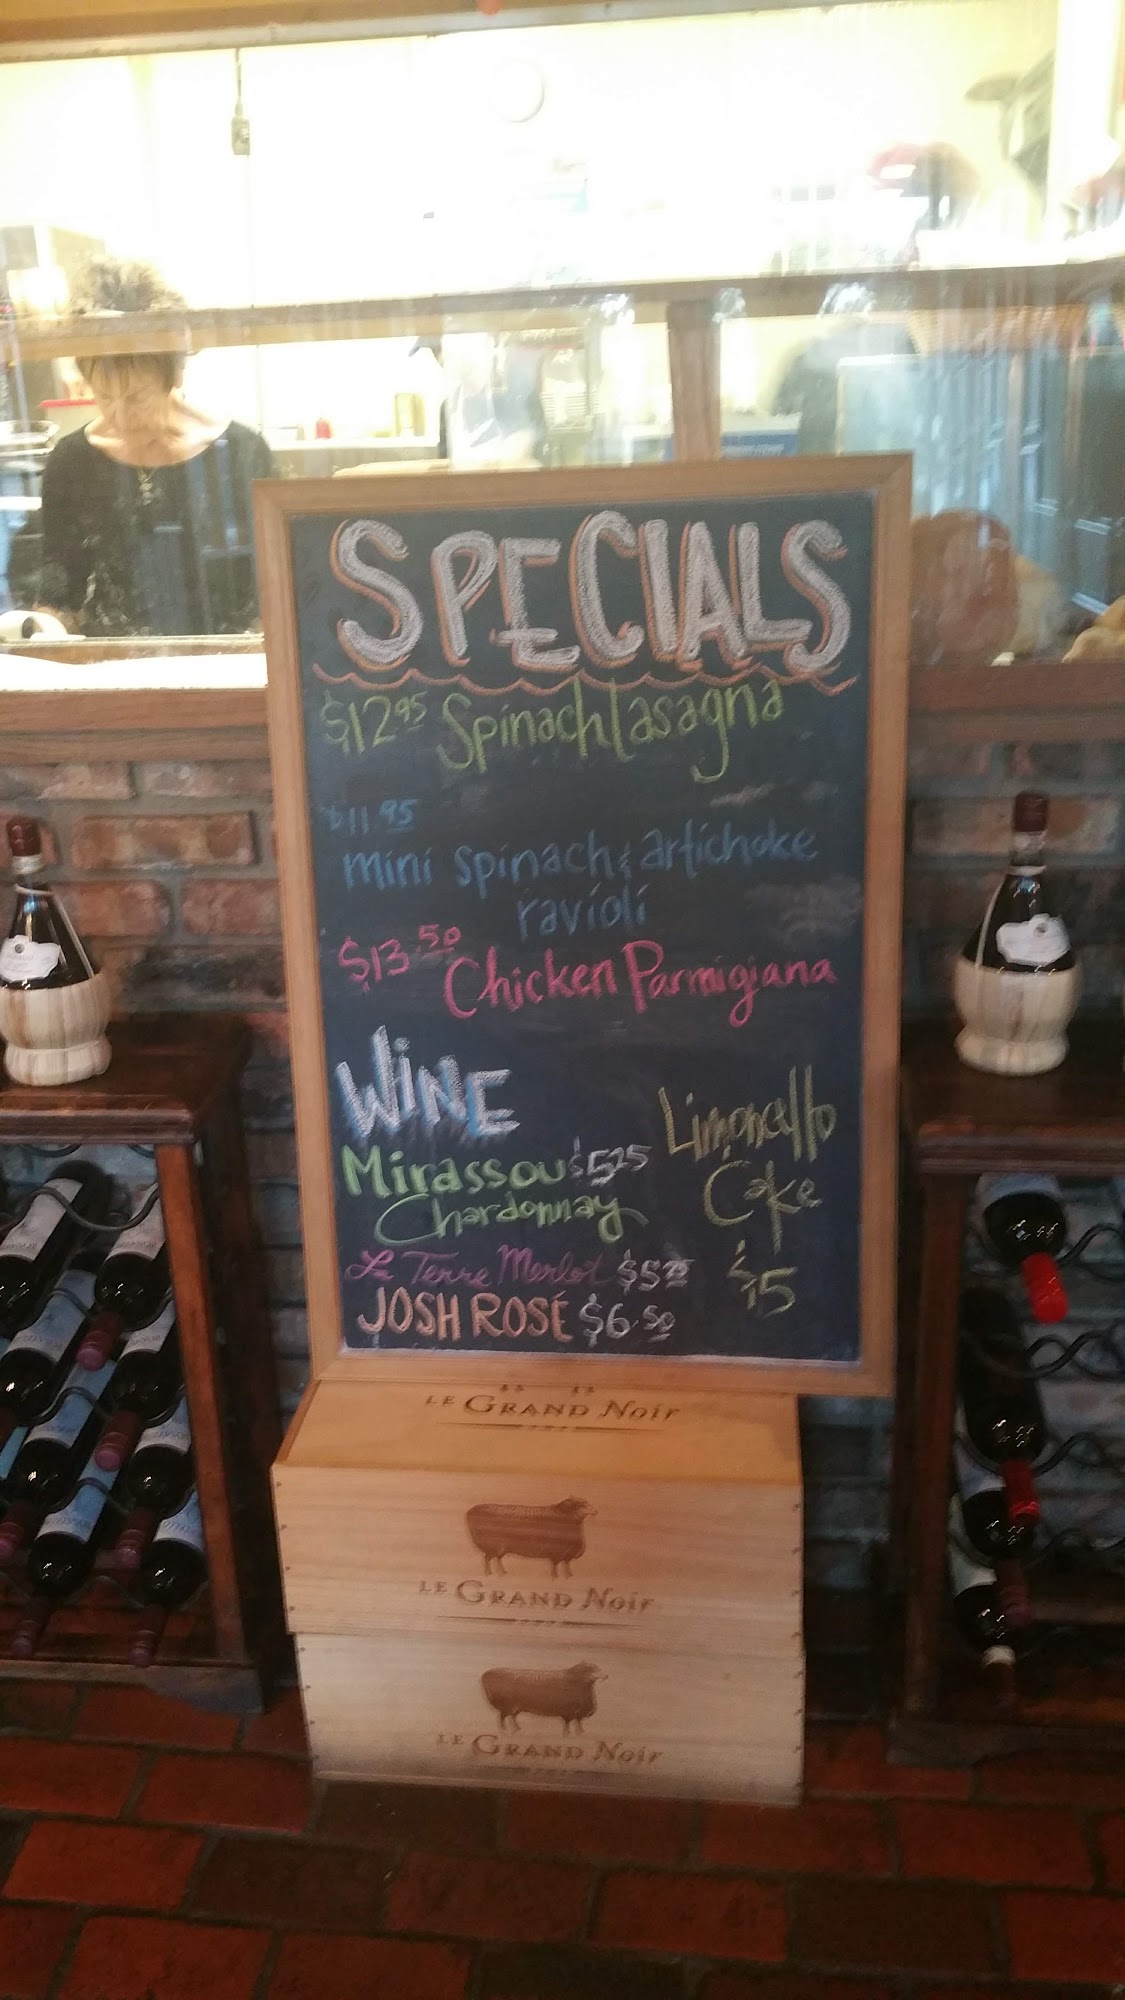 SPECIALS
$12.95 Spinach lasagna
$11.95
mini spinach & artichoke
ravioli
$13.50 Chicken Parmigiana
WINE
Mirassou $5.25
Chardonnay
La Terre Merlot $5.75
JOSH ROSÉ $6.50
Limoncello
Cake
$5
LE GRAND NOIR
LE GRAND NOIR
LE GRAND NOIR